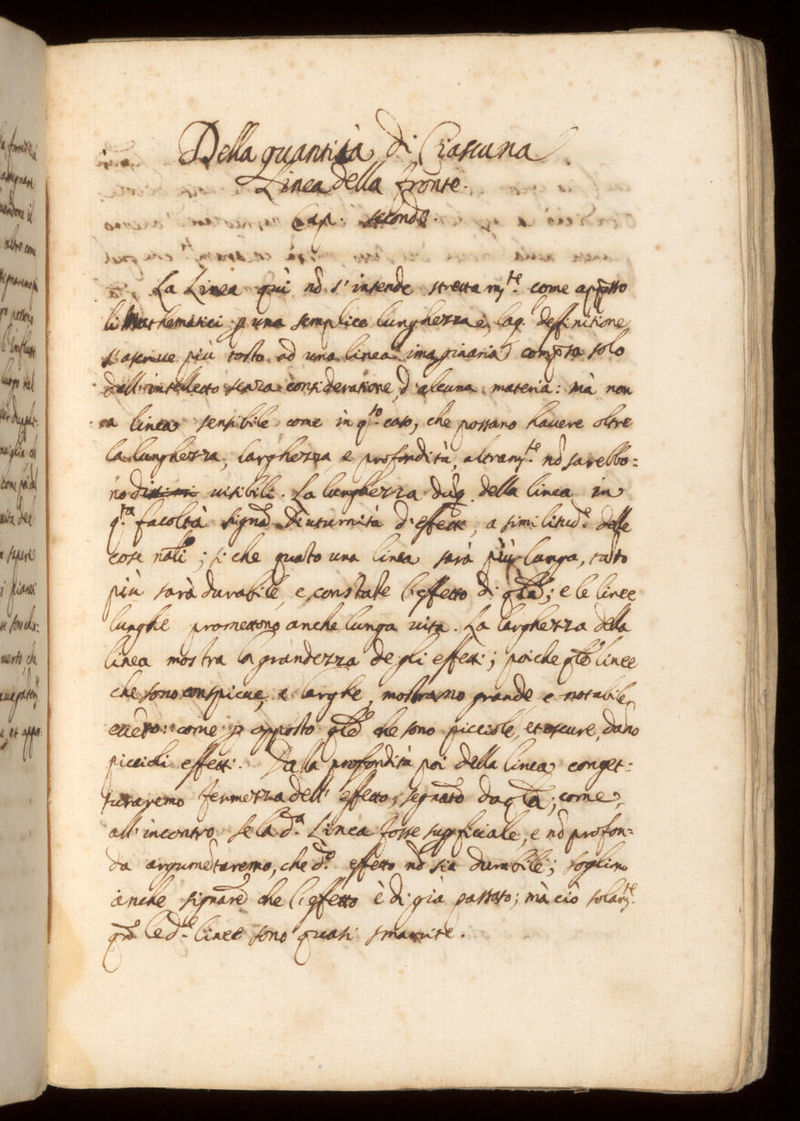 Della quantità di Ciascuna
Linea della fronte.
Cap. secondo.
La Linea quì nõ s'intende stretta m.te come apposto
li Mathematici p una semplice lunghezza, laq. definitione
s'ascrive più tosto ad una linea imaginaria compsa solo
dall'intelletto senza consideratione d'alcuna materia: mà non
a linea sensibile come in q.to caso, che possano havere oltre
la lunghezza, larghezza e profondità, altram.te nõ sarebbo=
no visibili. La lunghezza duq. della linea in
q.ta facoltà signã Diuturnità d'effetti, a similitud.e delle
cose nãli; si che quãto una linea sarà più longa, tãto
più sarà durabile, e constãte l'effetto di qlla; e le linee
lunghe promettono anche lunga vita. La larghezza della
linea mostra la grandezza degli effetti; poiche qlle linee
che sono conspicue, e larghe, mostrano grande e notabile
effetto: come p opposto qlle che sono picciole, et oscure, dãno
piccioli effetti. Da la profondità poi della linea conget=
turaremo fermezza dell'effetto, segnato da qlla; come
all'incontro se la d.a Linea fosse supficiale, e nõ profon=
da argumẽtaremo, che d.o effetto nõ sia durabile; sogliono
anche signare che l'effetto è di già passato; mà ciò solam.te
qñ le d.e linee sono quasi smarrite.